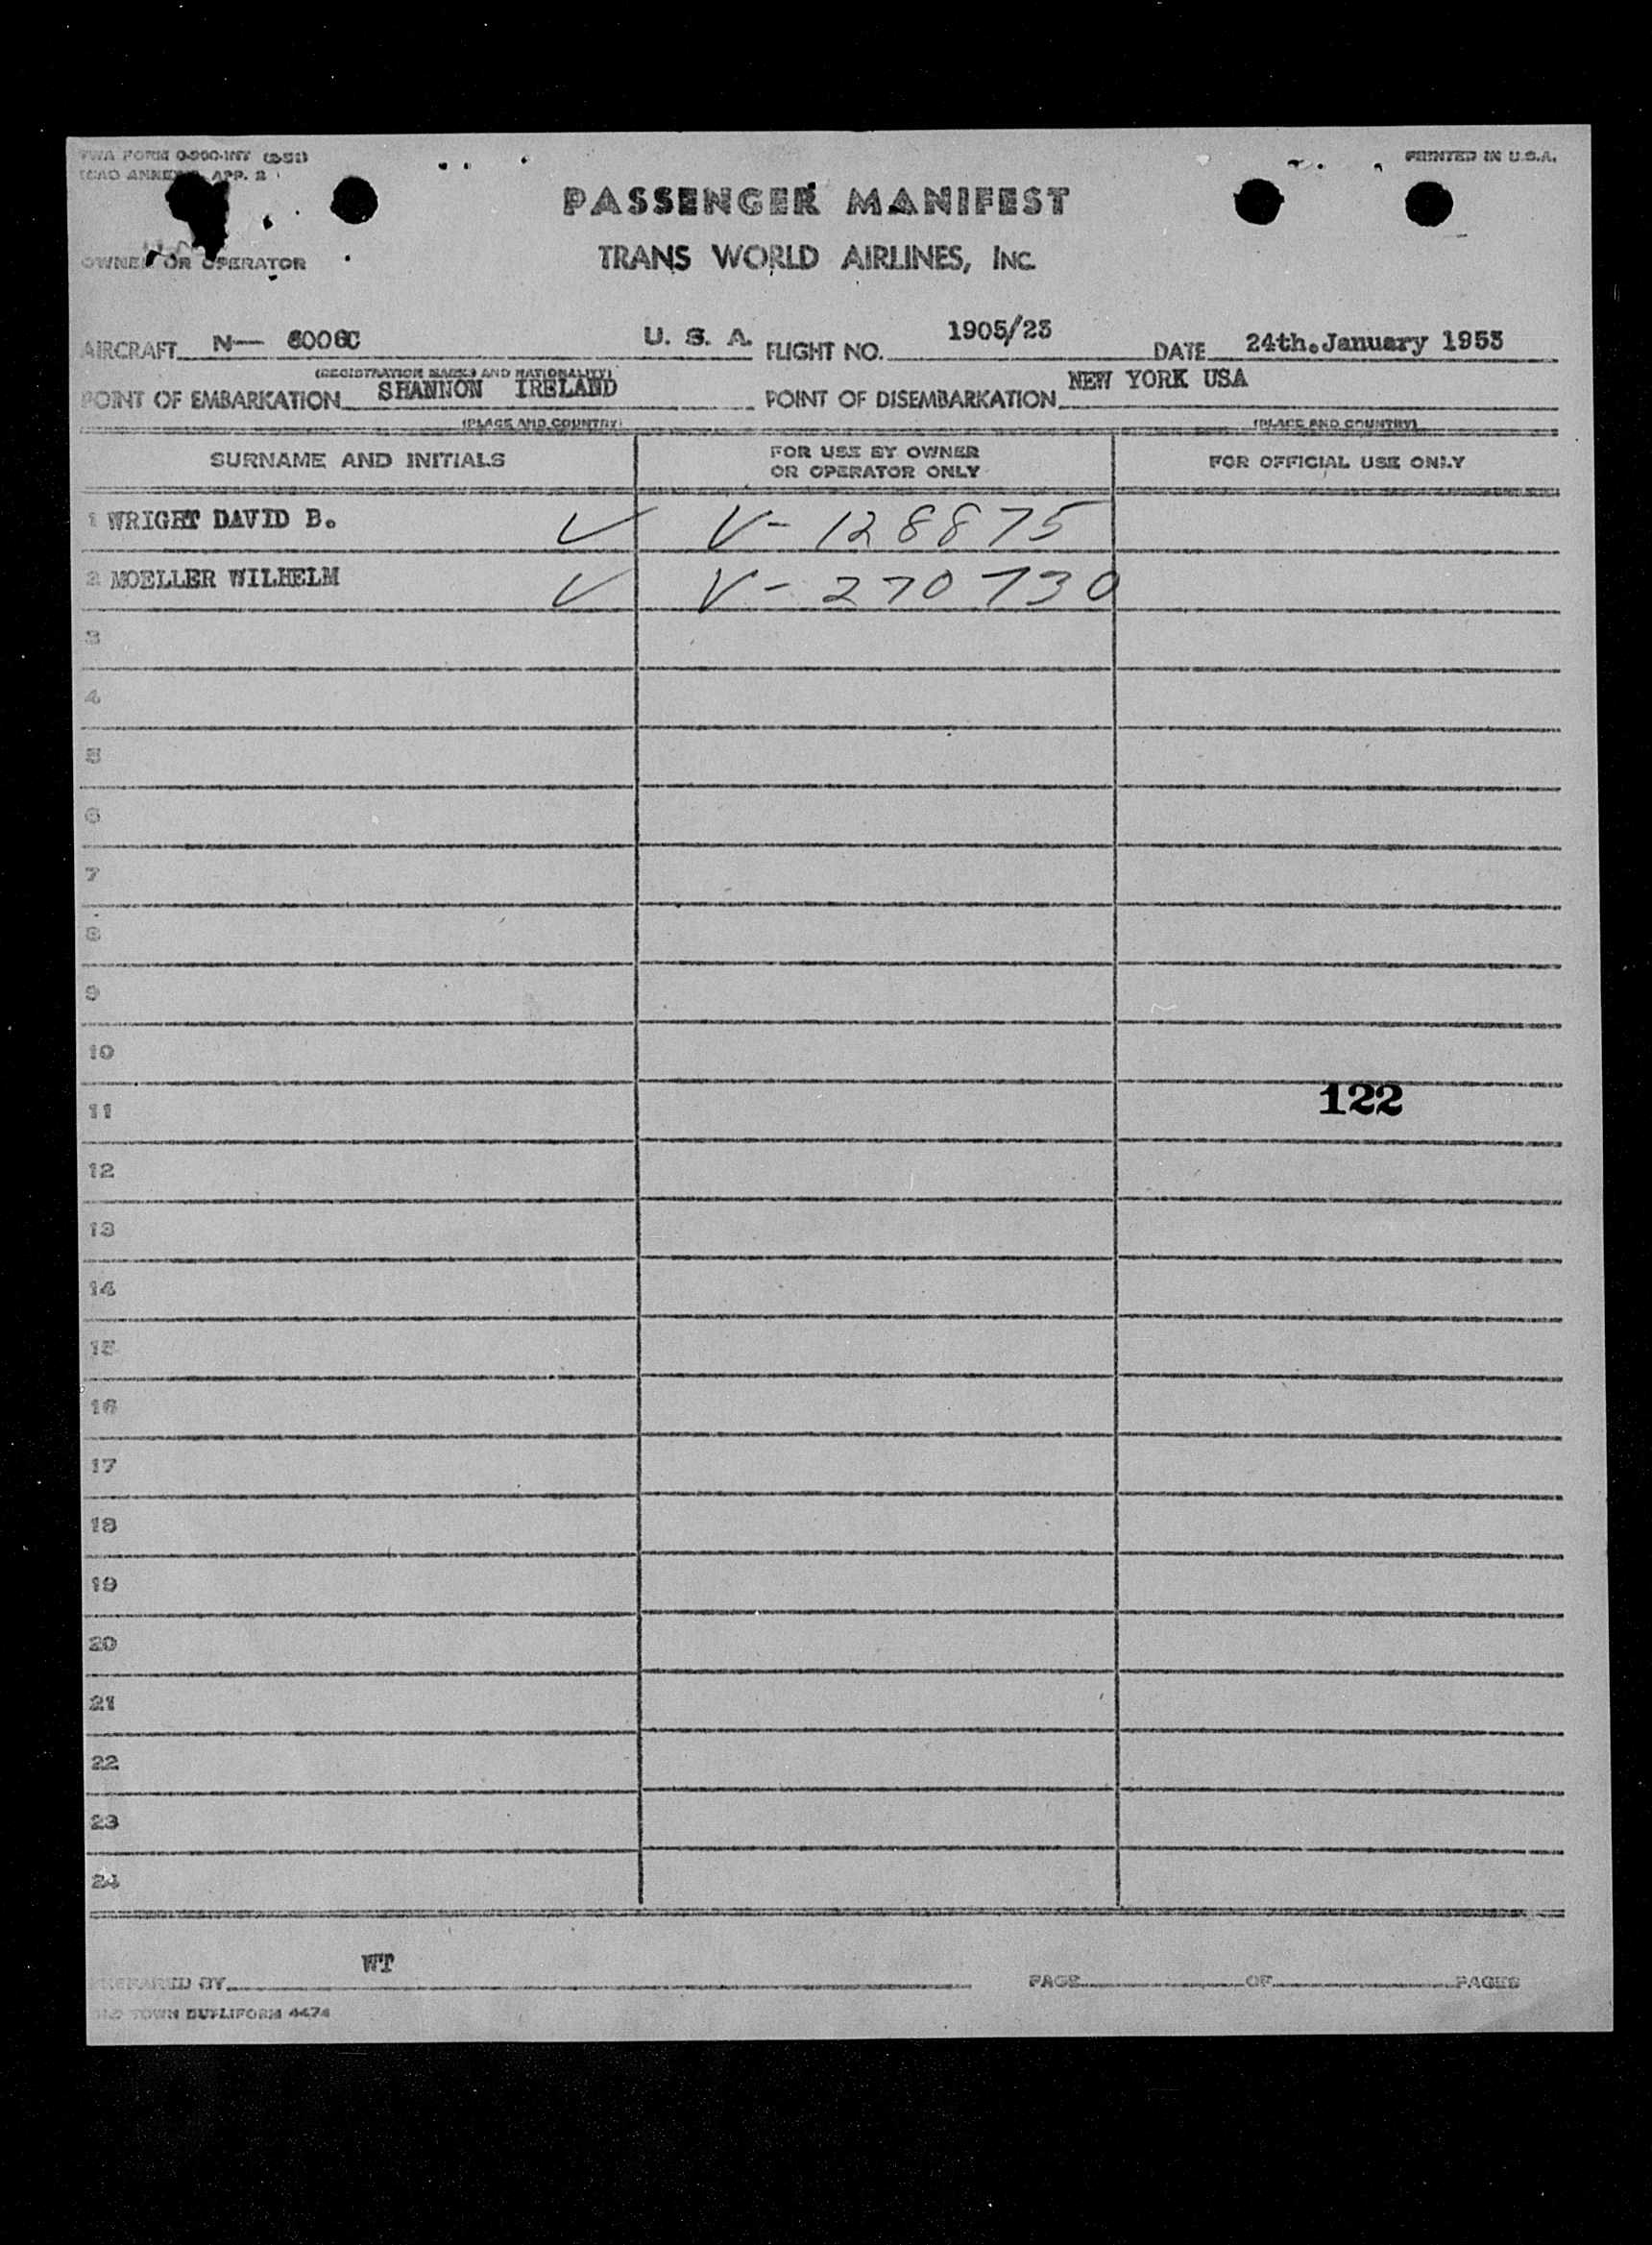 TWA FORM O-900-INT (2-51) PRINTED IN U.S.A.
ICAO ANNEX 9, APP. 2
PASSENGER MANIFEST
TRANS WORLD AIRLINES, INC.
OWNER OR OPERATOR
AIRCRAFT N— 6006C U. S. A. FLIGHT NO. 1905/23 DATE 24th.January 1953
(REGISTRATION MARKS AND NATIONALITY)
POINT OF EMBARKATION SHANNON IRELAND POINT OF DISEMBARKATION NEW YORK USA
(PLACE AND COUNTRY) (PLACE AND COUNTRY)
SURNAME AND INITIALS FOR USE BY OWNER OR OPERATOR ONLY FOR OFFICIAL USE ONLY
1 WRIGHT DAVID B. ✓ V- 128875
2 MOELLER WILHELM ✓ V- 270730
3
4
5
6
7
8
9
10
11 122
12
13
14
15
16
17
18
19
20
21
22
23
24
PREPARED BY WT PAGE OF PAGES
OLD TOWN DUPLIFORM 4474